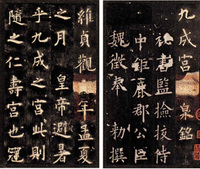 九成宮泉銘
秘書監撿挍侍
中鉅鹿郡公臣
魏徵奉勅撰
維貞觀年孟夏
之月皇帝避暑
乎九成之宮此則
隨之仁壽宮也冠